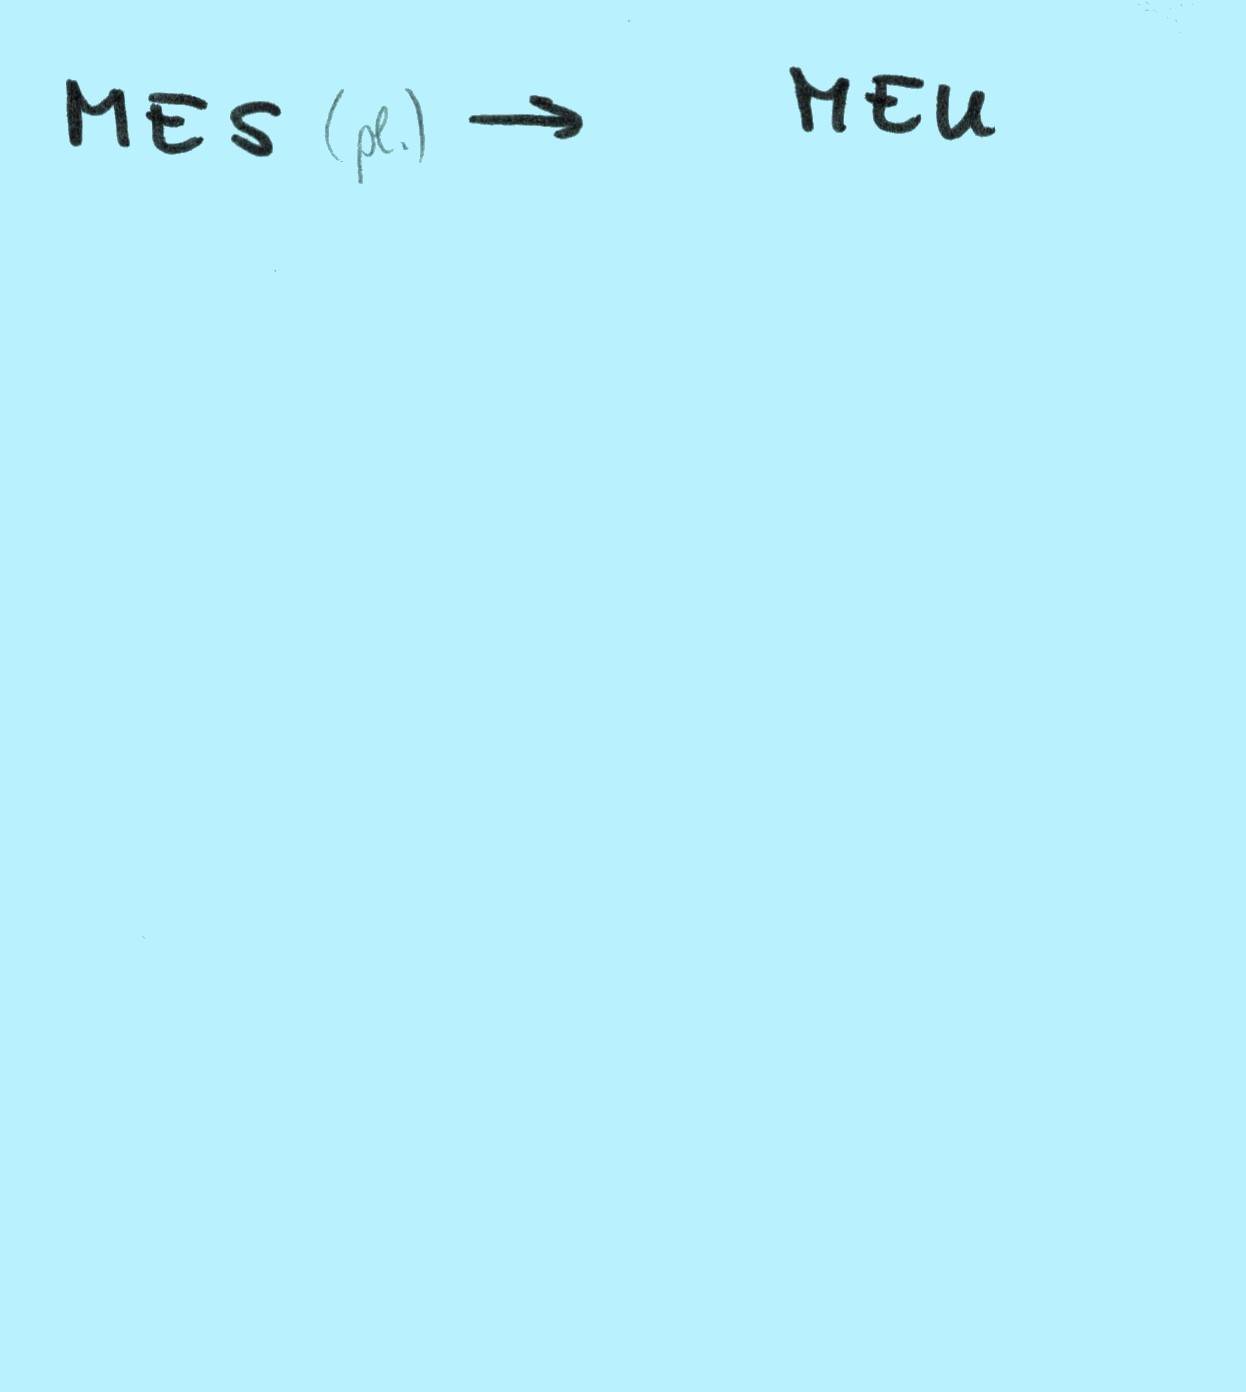 MES (pl.) → MEU